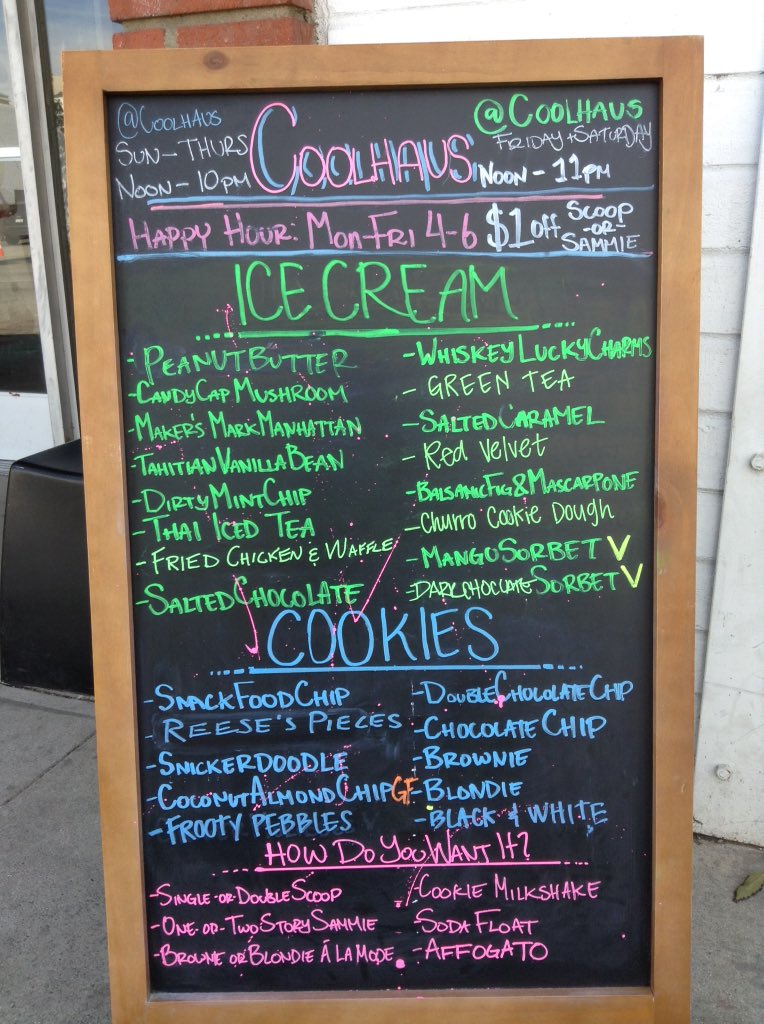 @COOLHAUS
SUN-THURS
NOON-10PM
COOLHAUS
@COOLHAUS
FRIDAY + SATURDAY
NOON - 11PM
HAPPY HOUR: MON-FRI 4-6 $1 off SCOOP -OR- SAMMIE
ICE CREAM
- PEANUT BUTTER
- CANDY CAP MUSHROOM
- MAKER'S MARK MANHATTAN
- TAHITIAN VANILLA BEAN
- DIRTY MINT CHIP
- THAI ICED TEA
- FRIED CHICKEN & WAFFLE
- SALTED CHOCOLATE
- WHISKEY LUCKY CHARMS
- GREEN TEA
- SALTED CARAMEL
- Red Velvet
- BALSAMIC FIG & MASCARPONE
- Churro Cookie Dough
- MANGO SORBET V
- DARK CHOCOLATE SORBET V
COOKIES
- SNACK FOOD CHIP
- REESE'S PIECES
- SNICKERDOODLE
- COCONUT ALMOND CHIP GF
- FROOTY PEBBLES
- DOUBLE CHOCOLATE CHIP
- CHOCOLATE CHIP
- BROWNIE
- BLONDIE
- BLACK & WHITE
HOW DO YOU WANT IT?
- SINGLE -OR- DOUBLE SCOOP
- ONE -OR- TWO STORY SAMMIE
- BROWNIE OR BLONDIE Á LA MODE
- COOKIE MILKSHAKE
SODA FLOAT
- AFFOGATO